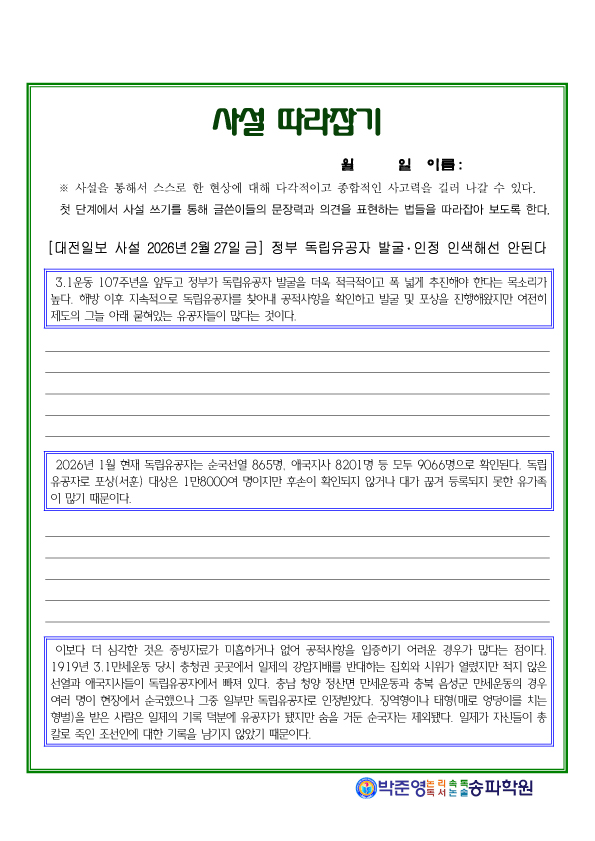 사설 따라잡기
월 일 이름:
※ 사설을 통해서 스스로 한 현상에 대해 다각적이고 종합적인 사고력을 길러 나갈 수 있다.
첫 단계에서 사설 쓰기를 통해 글쓴이들의 문장력과 의견을 표현하는 법들을 따라잡아 보도록 한다.
[대전일보 사설 2026년 2월 27일 금] 정부 독립유공자 발굴·인정 인색해선 안된다
3.1운동 107주년을 앞두고 정부가 독립유공자 발굴을 더욱 적극적이고 폭 넓게 추진해야 한다는 목소리가
높다. 해방 이후 지속적으로 독립유공자를 찾아내 공적사항을 확인하고 발굴 및 포상을 진행해왔지만 여전히
제도의 그늘 아래 묻혀있는 유공자들이 많다는 것이다.
2026년 1월 현재 독립유공자는 순국선열 865명, 애국지사 8201명 등 모두 9066명으로 확인된다. 독립
유공자로 포상(서훈) 대상은 1만8000여 명이지만 후손이 확인되지 않거나 대가 끊겨 등록되지 못한 유가족
이 많기 때문이다.
이보다 더 심각한 것은 증빙자료가 미흡하거나 없어 공적사항을 입증하기 어려운 경우가 많다는 점이다.
1919년 3.1만세운동 당시 충청권 곳곳에서 일제의 강압지배를 반대하는 집회와 시위가 열렸지만 적지 않은
선열과 애국지사들이 독립유공자에서 빠져 있다. 충남 청양 정산면 만세운동과 충북 음성군 만세운동의 경우
여러 명이 현장에서 순국했으나 그중 일부만 독립유공자로 인정받았다. 징역형이나 태형(매로 엉덩이를 치는
형벌)을 받은 사람은 일제의 기록 덕분에 유공자가 됐지만 숨을 거둔 순국자는 제외됐다. 일제가 자신들이 총
칼로 죽인 조선인에 대한 기록을 남기지 않았기 때문이다.
박준영 논리속독 독서논술 송파학원